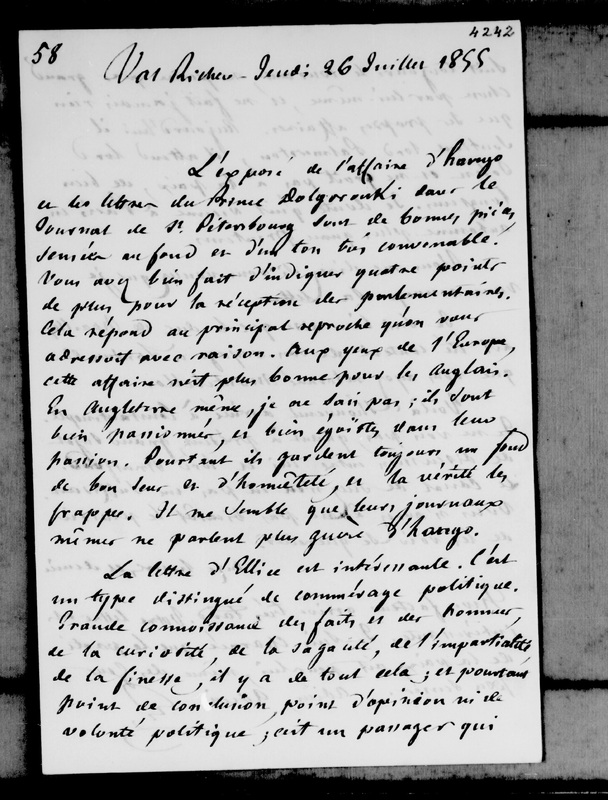 58
4242
Val Richer - Jeudi 26 Juillet 1855
L'exposé de l'affaire d'Hango
et les lettres du Prince Dolgorouki dans le
Journal de St Pétersbourg sont de bonnes pièces,
sensées au fond et d'un ton très convenable.
Vous avez bien fait d'indiquer quatre points
de plus pour la réception des parlementaires.
Cela répond au principal reproche qu'on vous
adressoit avec raison. Aux yeux de l'Europe,
cette affaire n'est plus bonne pour les Anglais.
En Angleterre même, je ne sais pas ; ils sont
bien passionnés, et bien égoïstes dans leur
passion. Pourtant ils gardent toujours un fond
de bon sens et d'honnêteté, et la vérité les
frappe. Il me semble que leurs journaux
mêmes ne parlent plus guère d'Hango.
La lettre d'Ellice est intéressante. C'est
un type distingué de commérage politique.
Grande connoissance des faits et des hommes,
de la curiosité, de la sagacité, de l'impartialité,
de la finesse, il y a de tout cela ; et pourtant
point de conclusion, point d'opinion ni de
volonté politique ; c'est un passager qui